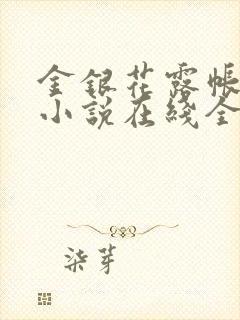 金银花露帐
小说在线全
柒芽